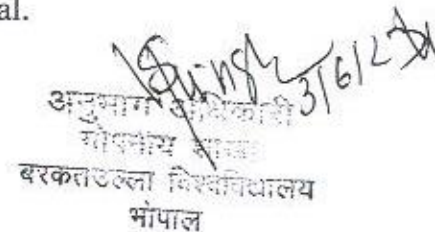 al.
Singh
3/6/2
अनुभाग अधिकारी
गोपनीय शाखा
बरकतउल्ला विश्वविद्यालय
भोपाल